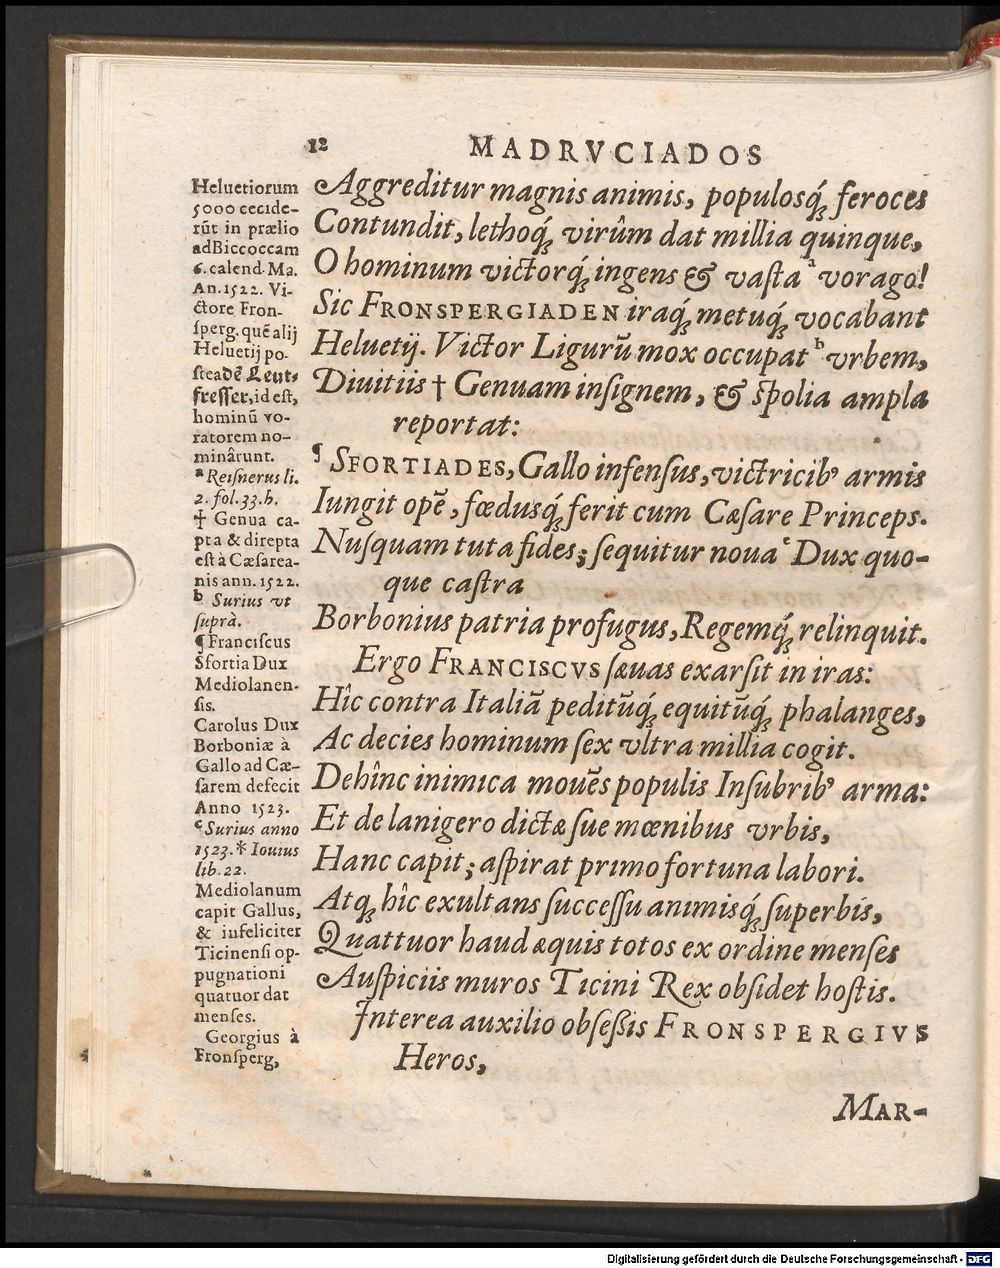 12 MADRVCIADOS
Aggreditur magnis animis, populosq́ꝫ feroces
Contundit, lethoq́ꝫ virûm dat millia quinque,
O hominum victorq́ꝫ ingens & vasta ᵃ vorago!
Sic FRONSPERGIADEN iraq́ꝫ metuq́ꝫ vocabant
Heluetij. Victor Ligurũ mox occupat ᵇ vrbem,
Diuitiis † Genuam insignem, & spolia ampla
reportat:
¶ SFORTIADES, Gallo infensus, victricibꝰ armis
Iungit opẽ, fœdusq́ꝫ ferit cum Cæsare Princeps.
Nusquam tuta fides; sequitur noua ᶜ Dux quo-
que castra
Borbonius patria profugus, Regemq́ꝫ relinquit.
Ergo FRANCISCVS sæuas exarsit in iras:
Hîc contra Italiã peditũq́ꝫ equitũq́ꝫ phalanges,
Ac decies hominum sex vltra millia cogit.
Dehînc inimica mouẽs populis Insubribꝰ arma:
Et de lanigero dictæ sue mœnibus vrbis,
Hanc capit; aspirat primo fortuna labori.
Atqꝫ hîc exultans successu animisq́ꝫ superbis,
Quattuor haud æquis totos ex ordine menses
Auspiciis muros Ticini Rex obsidet hostis.
Interea auxilio obsessis FRONSPERGIVS
Heros,
MAR-
Heluetiorum
5000 cecide-
rũt in prælio
ad Biccoccam
6. calend. Ma.
An. 1522. Vi-
ctore Fron-
sperg. quẽ alij
Heluetij po-
stea dẽ Leut-
fresser, id est,
hominũ vo-
ratorem no-
minârunt.
ᵃ Reisnerus li.
2. fol. 33. b.
† Genua ca-
pta & direpta
est à Cæsarea-
nis ann. 1522.
ᵇ Surius vt
suprà.
¶ Franciscus
Sfortia Dux
Mediolanen-
sis.
Carolus Dux
Borboniæ à
Gallo ad Cæ-
sarem defecit
Anno 1523.
ᶜ Surius anno
1523. * Iouius
lib. 22.
Mediolanum
capit Gallus,
& infeliciter
Ticinensi op-
pugnationi
quatuor dat
menses.
Georgius à
Fronsperg,
Digitalisierung gefördert durch die Deutsche Forschungsgemeinschaft - DFG